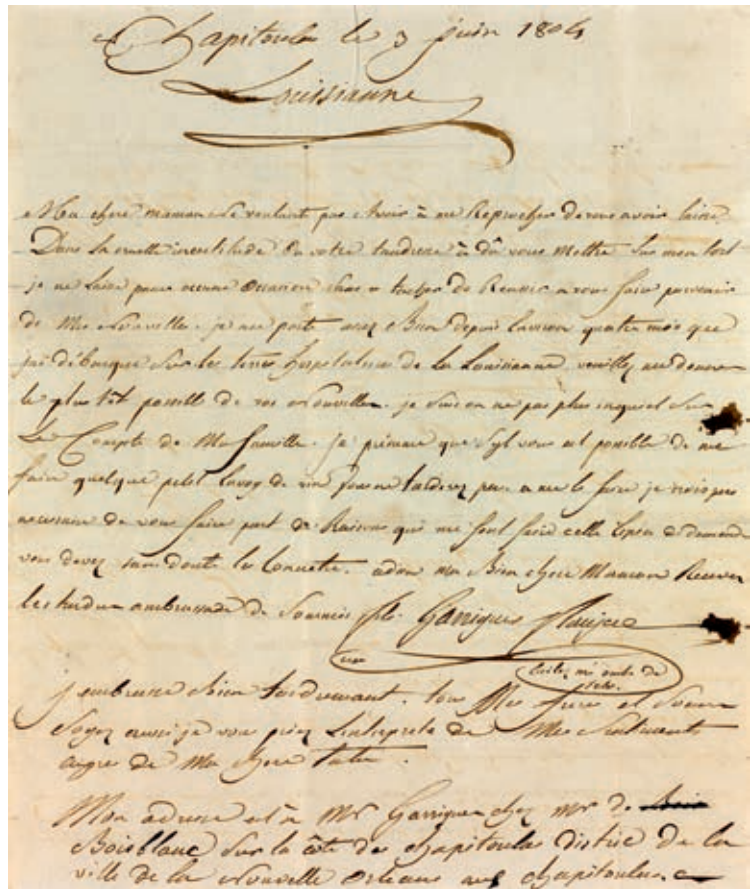 Chapitoula le 3 juin 1804
Louissianne
Ma chere maman Ne voulant pas Avoir à me Reprocher de vous avoir laissé
Dans la cruelle incertitude où votre tandresse à dû vous Mettre Sur mon sort
je ne laisse passer aucune occasion sans tacher de Reussir a vous faire parvenir
de Mes Nouvelles. je me porte assez Bien depuis Environ quatre mois que
jai débarqué Sur les terres hospitalieres de La Louisianne veuillez me donner
le plus tôt possible de vos Nouvelles. je suis on ne pas plus inquiet sur
Le Compte de Ma famille. je presume que Syl vous est possible de me
faire quelque petit Envoy de vous ne tarderez pas a me le faire je crois pas
necessaire de vous faire part de Raisons qui me font faire cette de demande
vous devez sans doute les Connetre. adieu ma Bien chere Maman Recevez
les tendres ambrassade de Garrigues Flaujac
j'embrasse Bien tendrement. tous Mes freres et Soeurs
Soyez aussi je vous prie L'interprete de Mes Sentiments
aupres de Ma chere tante.
Mon adresse est à Mr Garrigues chez Mr de
Boisblanc Sur la côte de chapitoula district de la
ville de la Nouvelle Orleans aux chapitoulas.